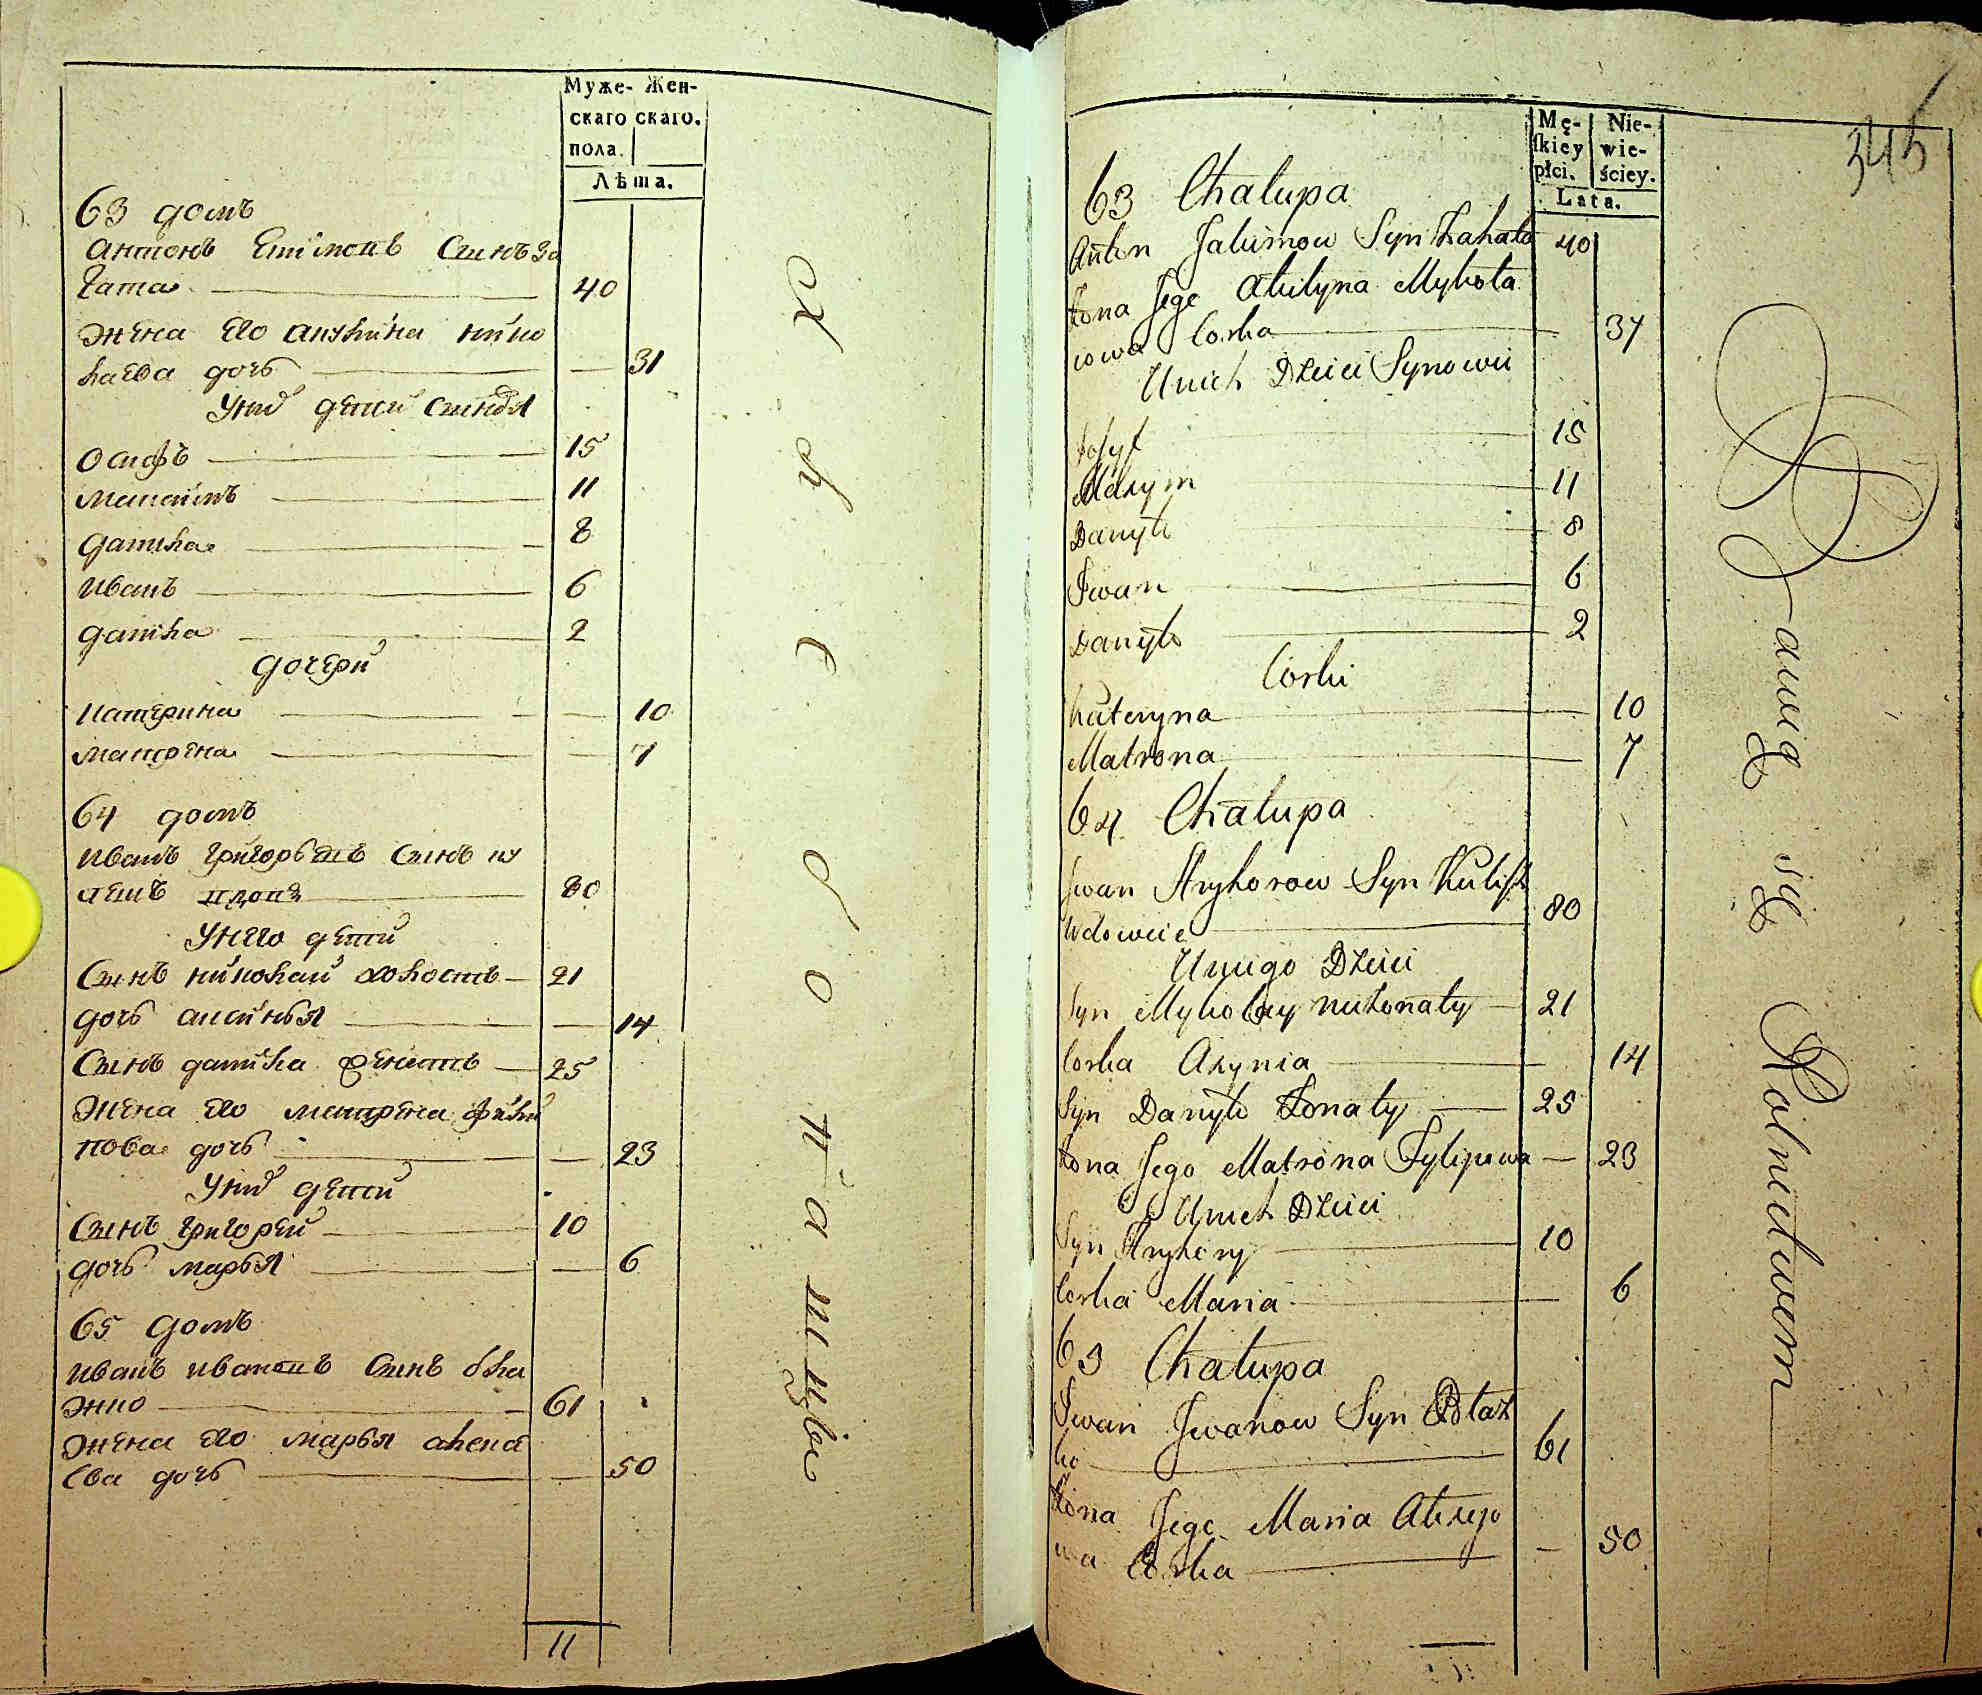 Муже- Жен-
скаго скаго.
пола.
Лѣта.
63 домъ
антонъ Сынъ за
40
жена его нико
лаева дочь — 31
У них дети Синовя
Осифъ 15
максимъ 11
данила 8
иванъ 6
данила 2
дочери
катерина — 10
матрена — 7
64 домъ
иванъ григорьевъ Сынъ ку
лешъ 80
У него дети
Сынъ николай холостъ — 21
дочь аксинья — 14
Сынъ данила женатъ — 25
жена его матрена фили
пова дочь — 23
У них дети
Сынъ григорей 10
дочь марья — 6
65 домъ
иванъ ивановъ Сынъ бла
жко 61
жена его марья алексе
ева дочь — 50
11
345
Mę- Nie-
ſkiey wie-
płci. ściey.
Lata.
63 Chalupa
Anton Jakimow Syn 40
Żona Jego Mykoła
iowa Corka 37
U nich Dzieci Synowie
Josyf 15
Maxym 11
Danyło 8
Jwan 6
Danyło 2
Corki
Kateryna 10
Matrona 7
64 Chalupa
Jwan Hryhorow Syn Kulisz
Wdowiec 80
U niego Dzieci
Syn Mykołay nieżonaty — 21
Corka Axynia 14
Syn Danyło Żonaty — 25
Żona Jego Matrona Fylipowa — 23
U nich Dzieci
Syn Hryhory 10
Corka Maria 6
65 Chalupa
Jwan Jwanow Syn Błaż
ko 61
Żona Jego Maria Alexijo
wa Corka — 50
Bawią się Rolnictwem